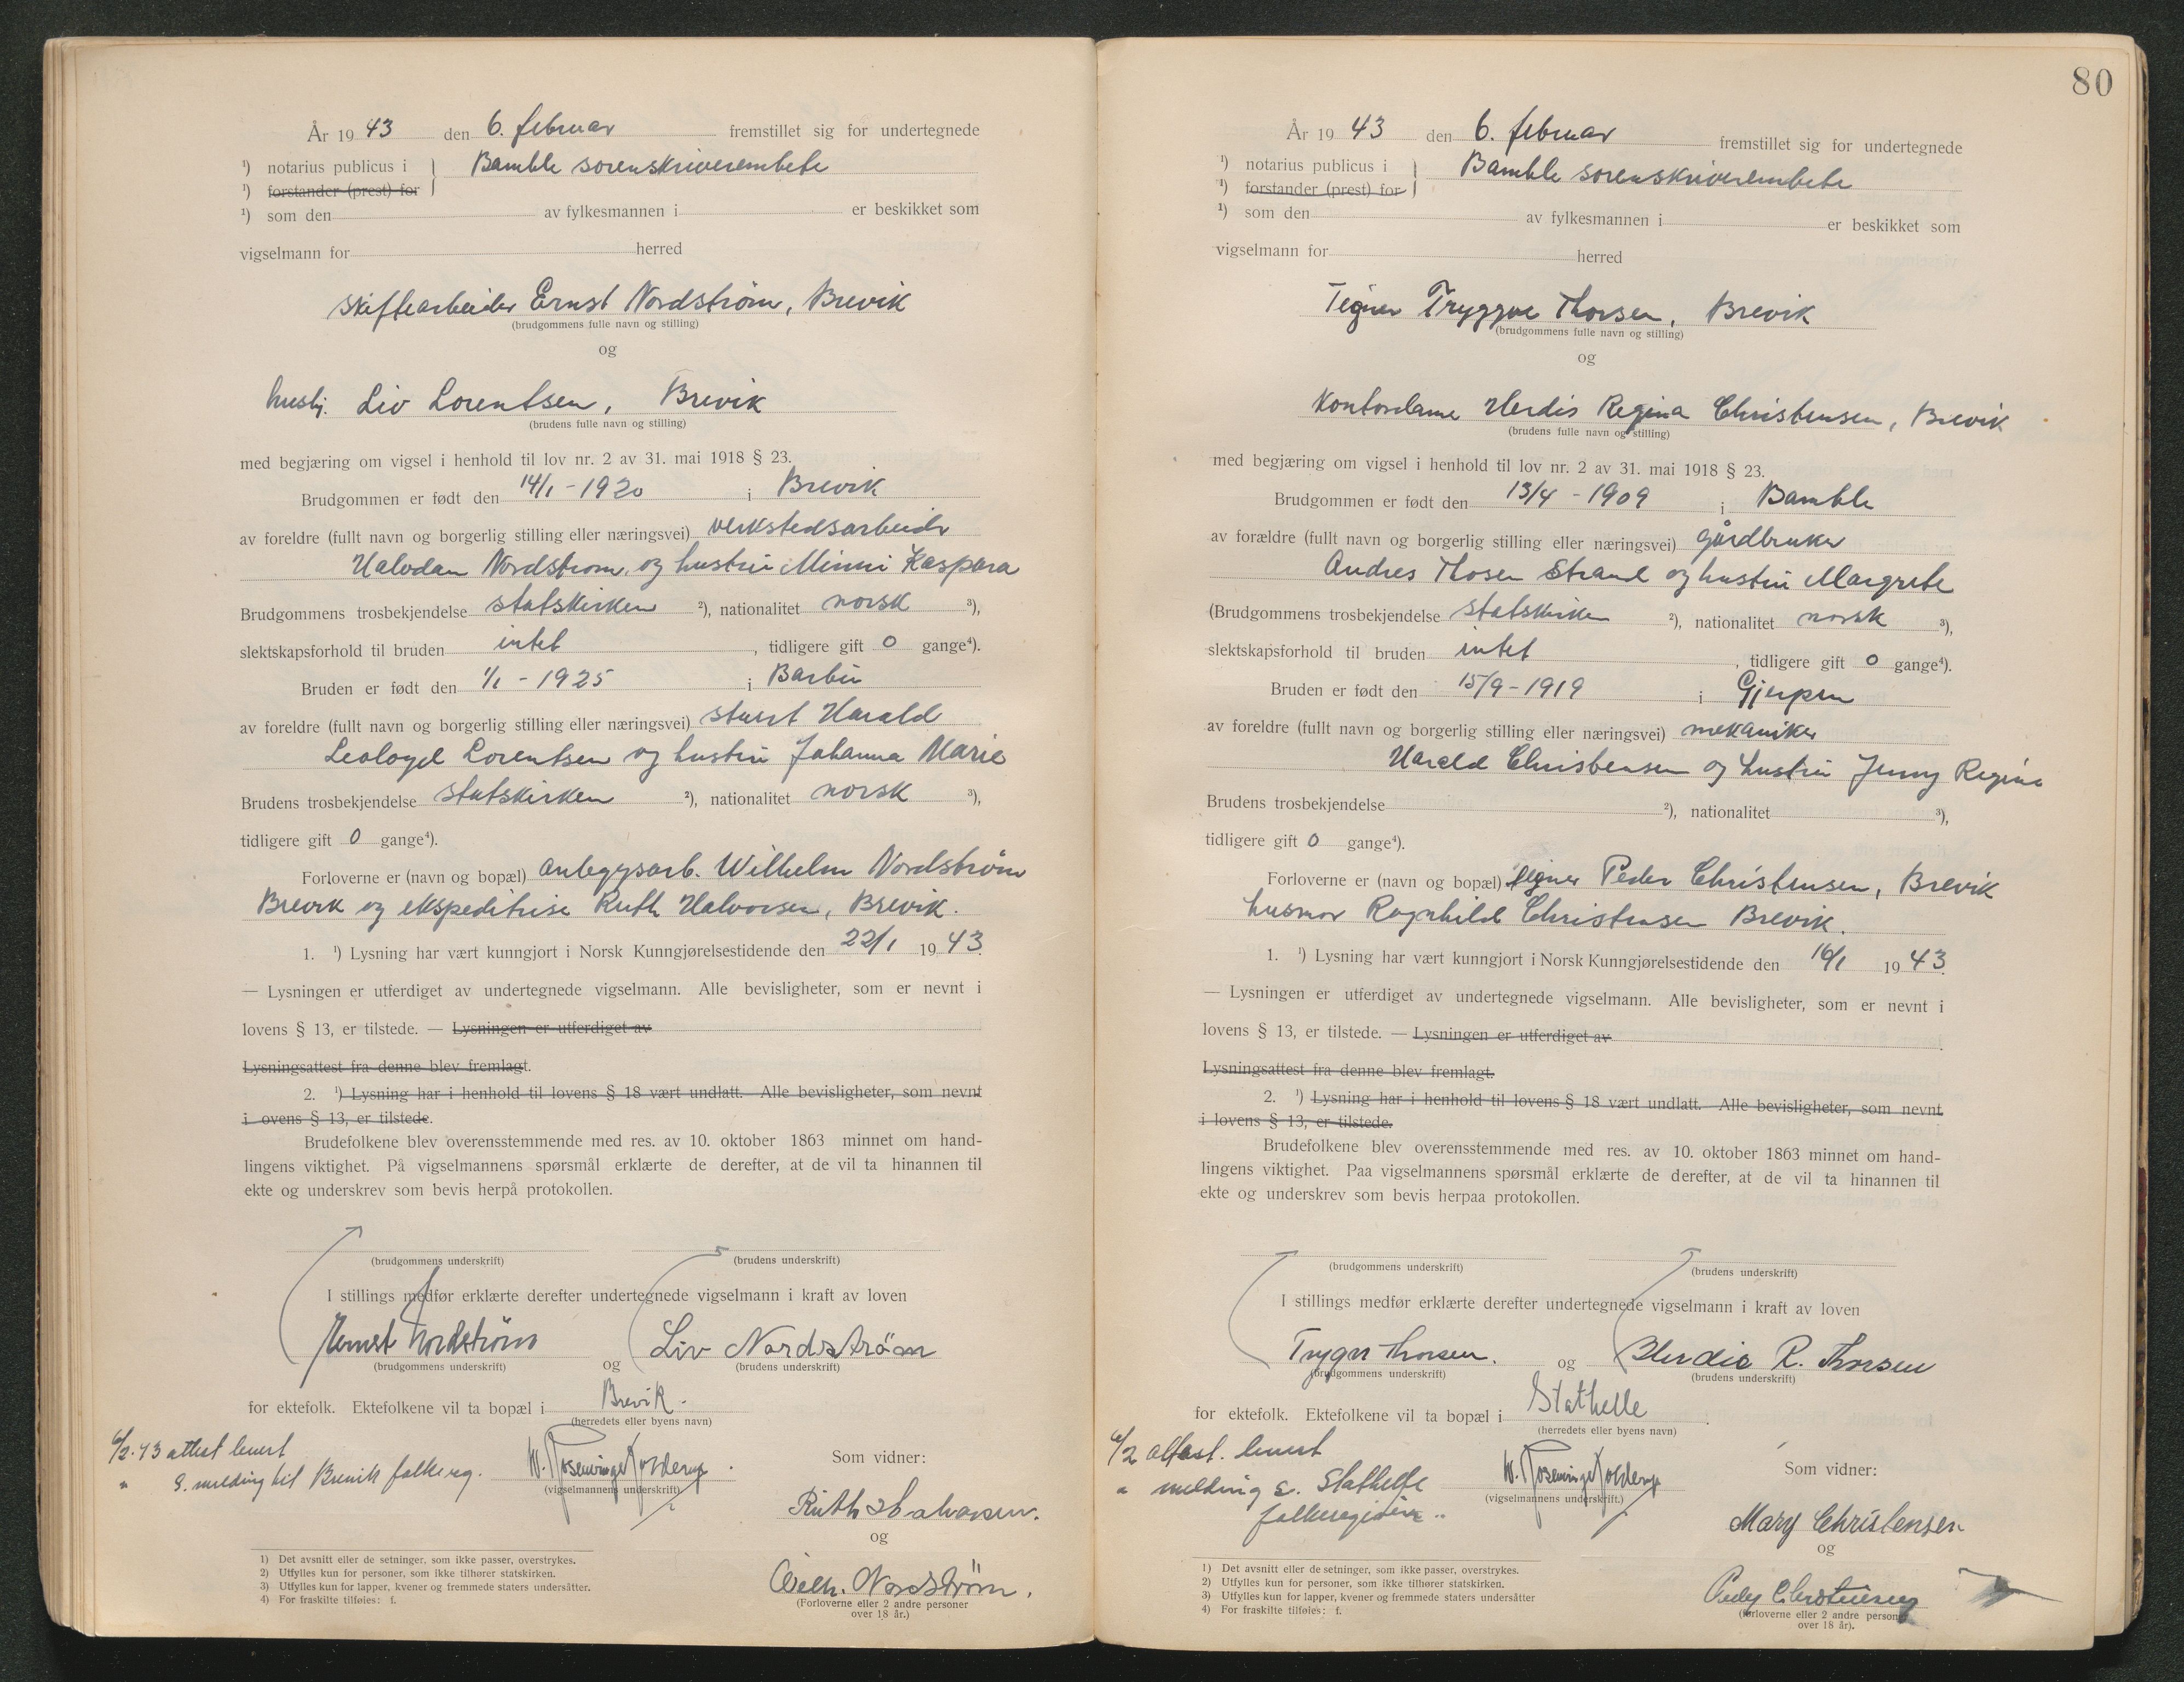 År 19 43 den 6. februar fremstillet sig for undertegnede
¹) notarius publicus i } Bamble sorenskriverembete
¹) forstander (prest) for
¹) som den av fylkesmannen i er beskikket som
vigselmann for herred
skiftearbeider Ernst Nordstrøm, Brevik
(brudgommens fulle navn og stilling)
og
hushj. Liv Lorentsen, Brevik
(brudens fulle navn og stilling)
med begjæring om vigsel i henhold til lov nr. 2 av 31. mai 1918 § 23.
Brudgommen er født den 14/1 - 1920 i Brevik
av foreldre (fullt navn og borgerlig stilling eller næringsvei) verkstedsarbeider
Halvdan Nordstrom og hustru Minni Kaspara
Brudgommens trosbekjendelse statskirken ²), nationalitet norsk ³),
slektskapsforhold til bruden intet , tidligere gift 0 gange⁴).
Bruden er født den 1/1 - 1925 i Barbu
av foreldre (fullt navn og borgerlig stilling eller næringsvei) stuert Harald
Lorentsen og hustru Johanna Marie
Brudens trosbekjendelse statskirken ²), nationalitet norsk ³),
tidligere gift 0 gange⁴).
Forloverne er (navn og bopæl) anleggsarb. Wilhelm Nordstrøm
Brevik og ekspeditrise Ruth Halvorsen, Brevik.
1. ¹) Lysning har vært kunngjort i Norsk Kunngjørelsestidende den 22/1 19 43.
— Lysningen er utferdiget av undertegnede vigselmann. Alle bevisligheter, som er nevnt i
lovens § 13, er tilstede. — Lysningen er utferdiget av
Lysningsattest fra denne blev fremlagt.
2. ¹) Lysning har i henhold til lovens § 18 vært undlatt. Alle bevisligheter, som nevnt
i ovens § 13, er tilstede.
Brudefolkene blev overensstemmende med res. av 10. oktober 1863 minnet om hand-
lingens viktighet. På vigselmannens spørsmål erklærte de derefter, at de vil ta hinannen til
ekte og underskrev som bevis herpå protokollen.
(brudgommens underskrift) (brudens underskrift)
I stillings medfør erklærte derefter undertegnede vigselmann i kraft av loven
Ernst Nordstrøm og Liv Nordstrøm
(brudgommens underskrift) (brudens underskrift)
for ektefolk. Ektefolkene vil ta bopæl i Brevik.
(herredets eller byens navn)
6/2-43 attest levert
" melding til Brevik folkereg. W. Rosenvinge Kolderup.
(vigselmannens underskrift)
Som vidner:
Ruth Halvorsen.
og
Wilh. Nordstrøm.
(Forloverne eller 2 andre personer
over 18 år.)
1) Det avsnitt eller de setninger, som ikke passer, overstrykes.
2) Utfylles kun for personer, som ikke tilhører statskirken.
3) Utfylles kun for lapper, kvener og fremmede staters undersåtter.
4) For fraskilte tilføies: f.
80
År 19 43 den 6. februar fremstillet sig for undertegnede
¹) notarius publicus i } Bamble sorenskriverembete
¹) forstander (prest) for
¹) som den av fylkesmannen i er beskikket som
vigselmann for herred
Tegner Tryggve Thorsen, Brevik
(brudgommens fulle navn og stilling)
og
Kontordame Herdis Regina Christensen, Brevik
(brudens fulle navn og stilling)
med begjæring om vigsel i henhold til lov nr. 2 av 31. mai 1918 § 23.
Brudgommen er født den 13/4 - 1909 i Bamble
av forældre (fullt navn og borgerlig stilling eller næringsvei) gårdbruker
Andres Thosen Strand og hustru Margrete
(Brudgommens trosbekjendelse statskirken ²), nationalitet norsk ³),
slektskapsforhold til bruden intet , tidligere gift 0 gange⁴).
Bruden er født den 15/9 - 1919 i Gjerpen
av foreldre (fullt navn og borgerlig stilling eller næringsvei) mekaniker
Harald Christensen og hustru Jenny Regine
Brudens trosbekjendelse ²), nationalitet ³),
tidligere gift 0 gange⁴).
Forloverne er (navn og bopæl) tegner Peder Christensen, Brevik
husmor Ragnhild Christensen Brevik.
1. ¹) Lysning har vært kunngjort i Norsk Kunngjørelsestidende den 16/1 19 43.
— Lysningen er utferdiget av undertegnede vigselmann. Alle bevisligheter, som er nevnt i
lovens § 13, er tilstede. — Lysningen er utferdiget av
Lysningsattest fra denne blev fremlagt.
2. ¹) Lysning har i henhold til lovens § 18 vært undlatt. Alle bevisligheter, som nevnt
i lovens § 13, er tilstede.
Brudefolkene blev overensstemmende med res. av 10. oktober 1863 minnet om hand-
lingens viktighet. Paa vigselmannens spørsmål erklærte de derefter, at de vil ta hinannen til
ekte og underskrev som bevis herpaa protokollen.
(brudgommens underskrift) (brudens underskrift)
I stillings medfør erklærte derefter undertegnede vigselmann i kraft av loven
Trygve Thorsen. og Herdis R. Thorsen
(brudgommens underskrift) (brudens underskrift)
for ektefolk. Ektefolkene vil ta bopæl i Stathelle.
(herredets eller byens navn)
6/2 attest. levert
" melding s. Stathelle W. Rosenvinge Kolderup
folkeregister.. (vigselmannens underskrift.)
Som vidner:
Mary Christensen
og
Peder Christensen
(forloverne eller 2 andre personer
over 18 år).
1) Det avsnitt eller de setninger, som ikke passer, overstrykes.
2) Utfylles kun for personer, som ikke tilhører statskirken.
3) Utfylles kun for lapper, kvener og fremmede staters undersåtter
4) For fraskilte tilføies: f.